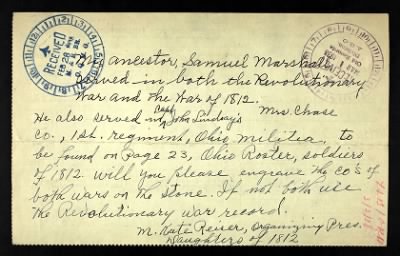 My ancestor, Samuel Marshall
served in both the Revolutionary
War and the War of 1812.
Mrs. Chase
He also served in Capt John Lindsay's
Co., 1st. regiment, Ohio militia, to
be found on Page 23, Ohio Roster, soldiers
of 1812. Will you please engrave the CO's of
both wars on the Stone. If not both use
the Revolutionary war record.
M. Organizing Pres.
Daughters of 1812
RECEIVED
FEB 28